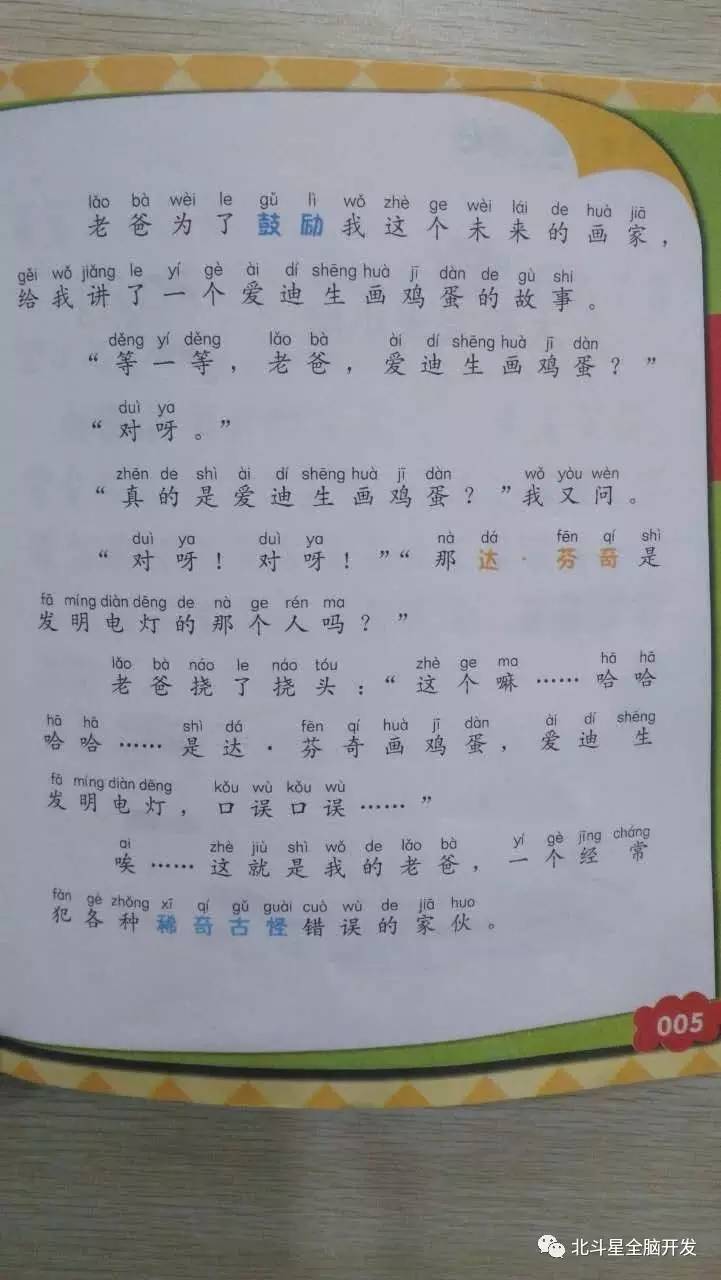 lǎo bà wèi le gǔ lì wǒ zhè ge wèi lái de huà jiā
老爸为了鼓励我这个未来的画家，
gěi wǒ jiǎng le yí gè ài dí shēng huà jī dàn de gù shi
给我讲了一个爱迪生画鸡蛋的故事。
děng yí děng lǎo bà ài dí shēng huà jī dàn
“等一等，老爸，爱迪生画鸡蛋？”
duì ya
“对呀。”
zhēn de shì ài dí shēng huà jī dàn wǒ yòu wèn
“真的是爱迪生画鸡蛋？”我又问。
duì ya duì ya nà dá fēn qí shì
“对呀！对呀！”“那达·芬奇是
fā míng diàn dēng de nà ge rén ma
发明电灯的那个人吗？”
lǎo bà náo le náo tóu zhè ge ma hā hā
老爸挠了挠头：“这个嘛……哈哈
hā hā shì dá fēn qí huà jī dàn ài dí shēng
哈哈……是达·芬奇画鸡蛋，爱迪生
fā míng diàn dēng kǒu wù kǒu wù
发明电灯，口误口误……”
ai zhè jiù shì wǒ de lǎo bà yí gè jīng cháng
唉……这就是我的老爸，一个经常
fàn gè zhǒng xī qí gǔ guài cuò wù de jiā huo
犯各种稀奇古怪错误的家伙。
005
北斗星全脑开发